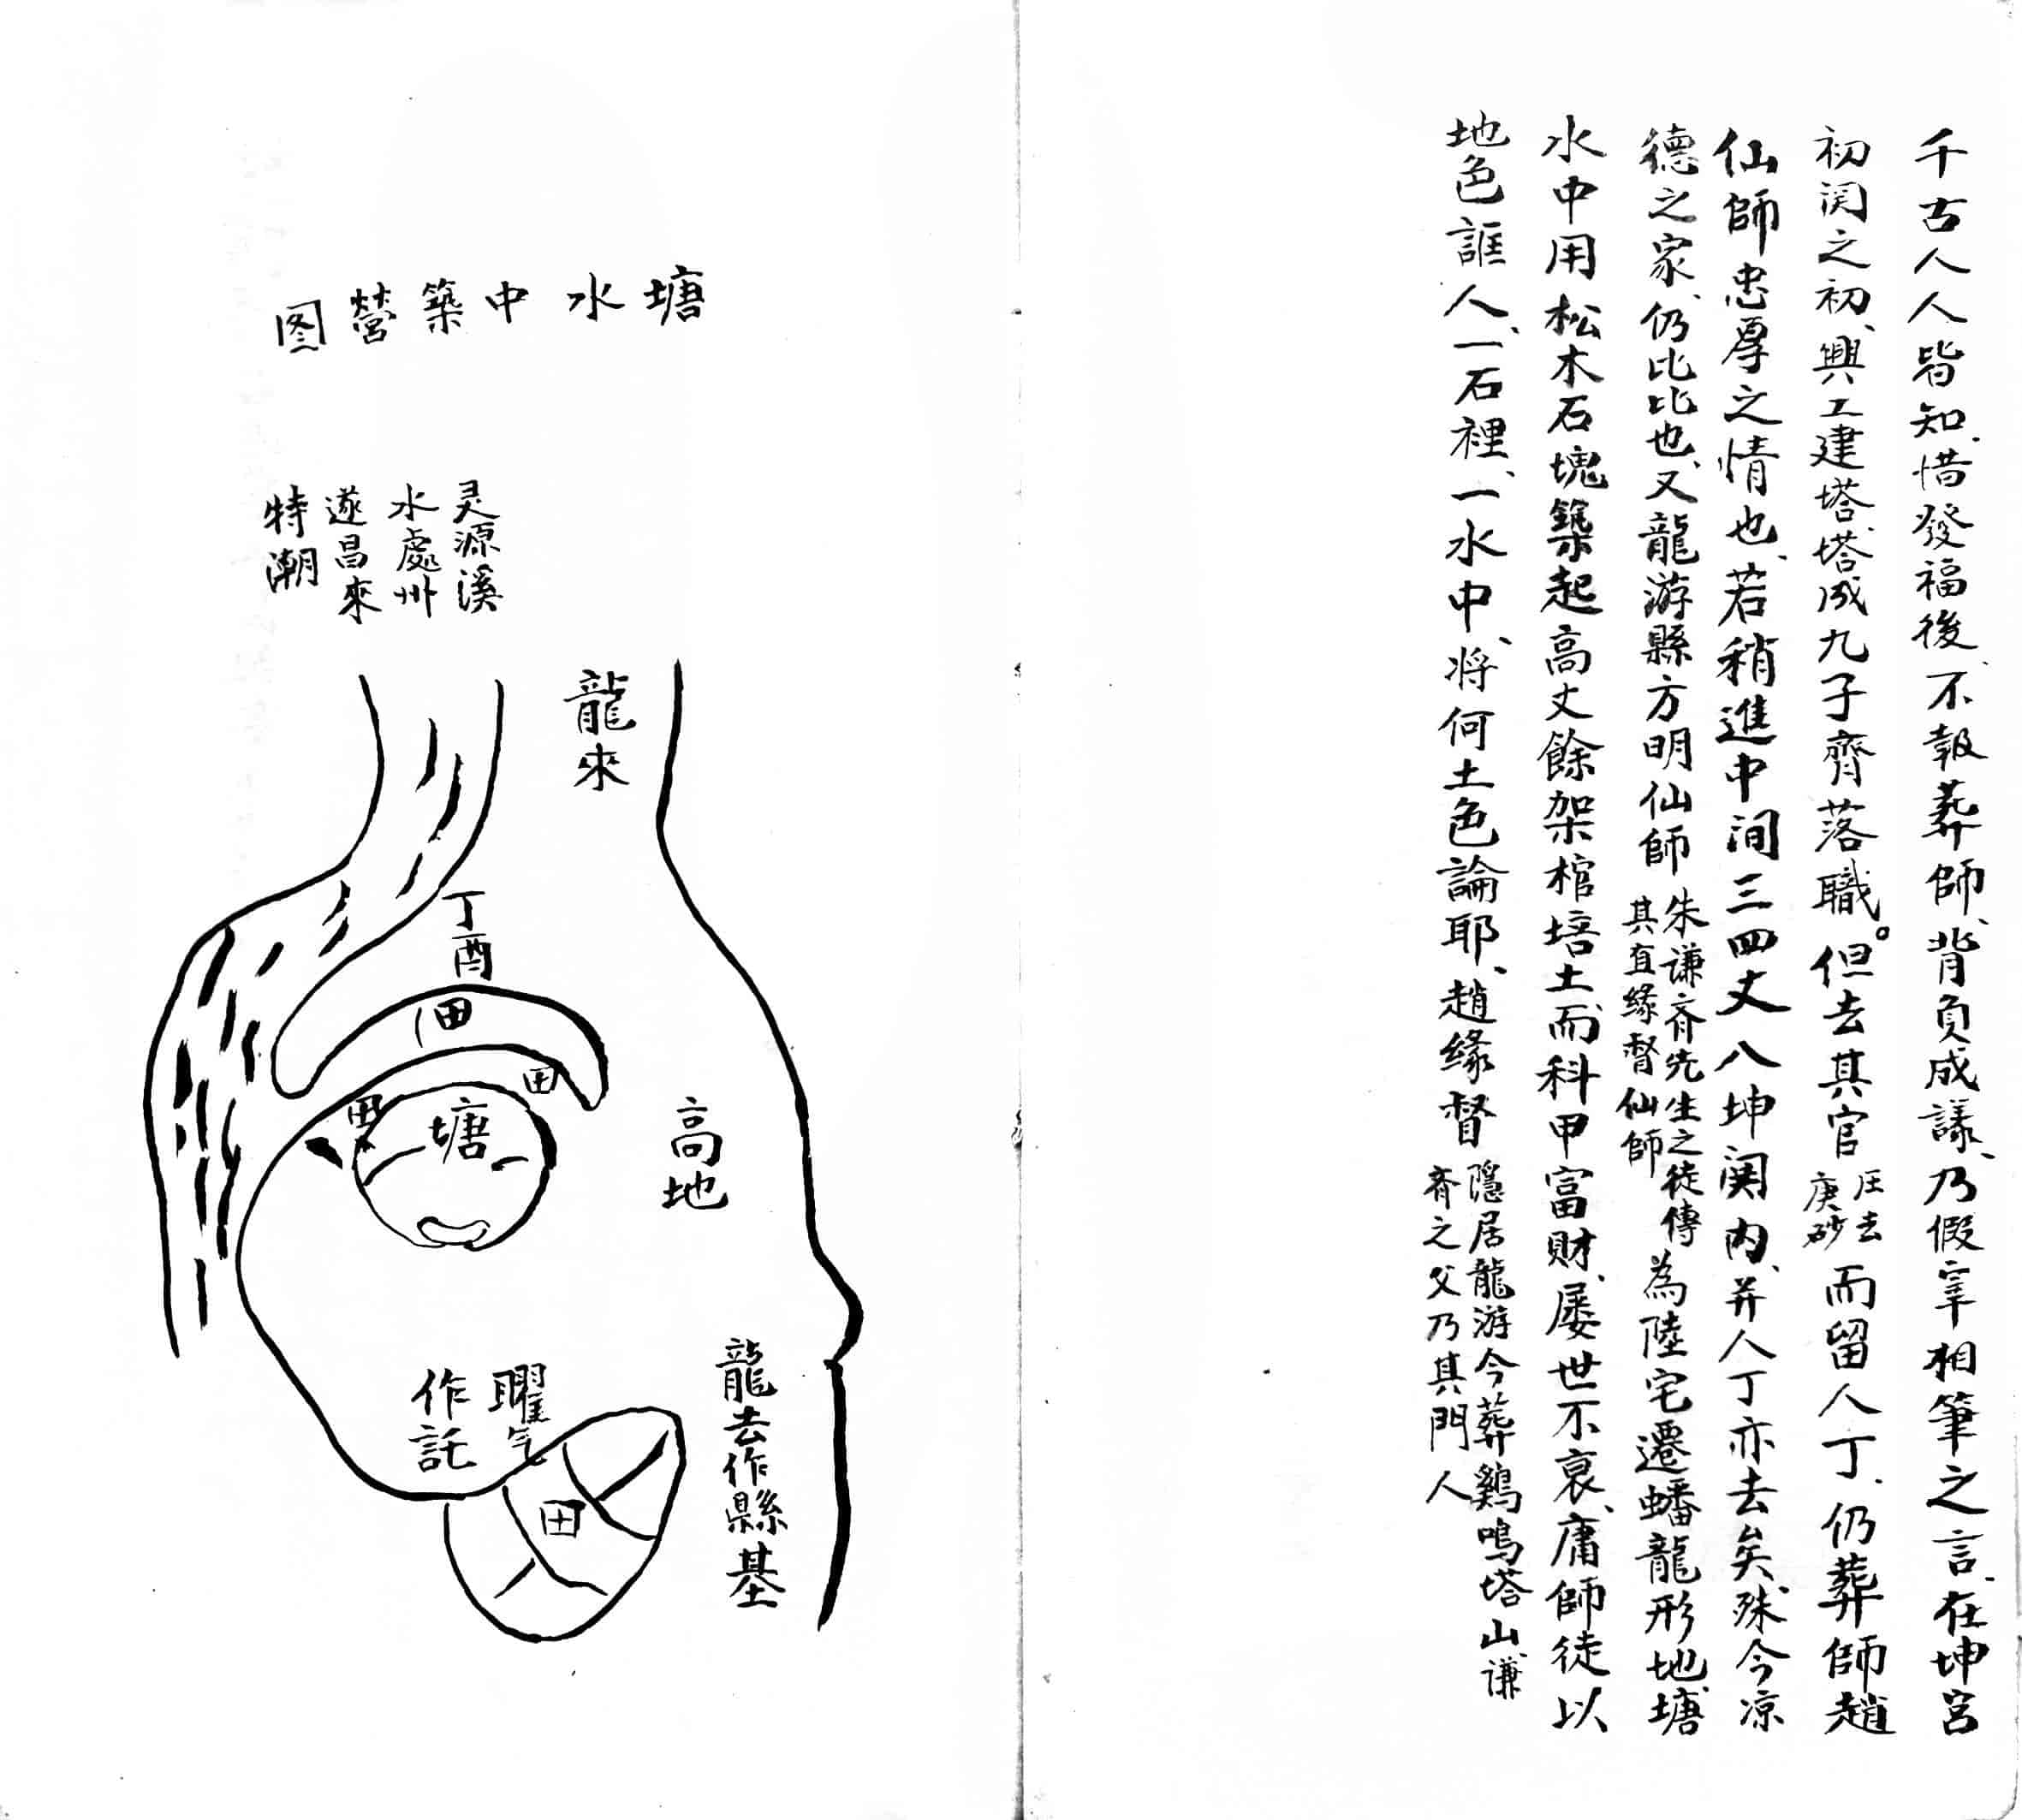 千古人人皆知、惜發福後、不報葬師、背負成議、乃假宰相筆之言、在坤宮
初関之初、興工建塔、塔成九子齊落職。但去其官
圧去
庚砂
而留人丁、仍葬師趙
仙師忠厚之情也、若稍進中间三四丈八坤関内、并人丁亦去矣、殊今凉
德之家、仍比比也、又龍游縣方明仙師
朱谦斉先生之徒傳
其直緣督仙師
為陸宅遷蟠龍形地、塘
水中用松木石塊築起高丈餘架棺培土、而科甲富財、屡世不衰、庸師徒以
地色誆人、一石裡、一水中、将何土色論耶、趙缘督
隱居龍游今葬鷄鳴塔山、谦
斉之父乃其門人
塘水中築營图
灵源溪
水處州
遂昌來
特潮
龍來
丁酉
田
田
田
塘
高地
龍去作縣基
曜气
作託
田